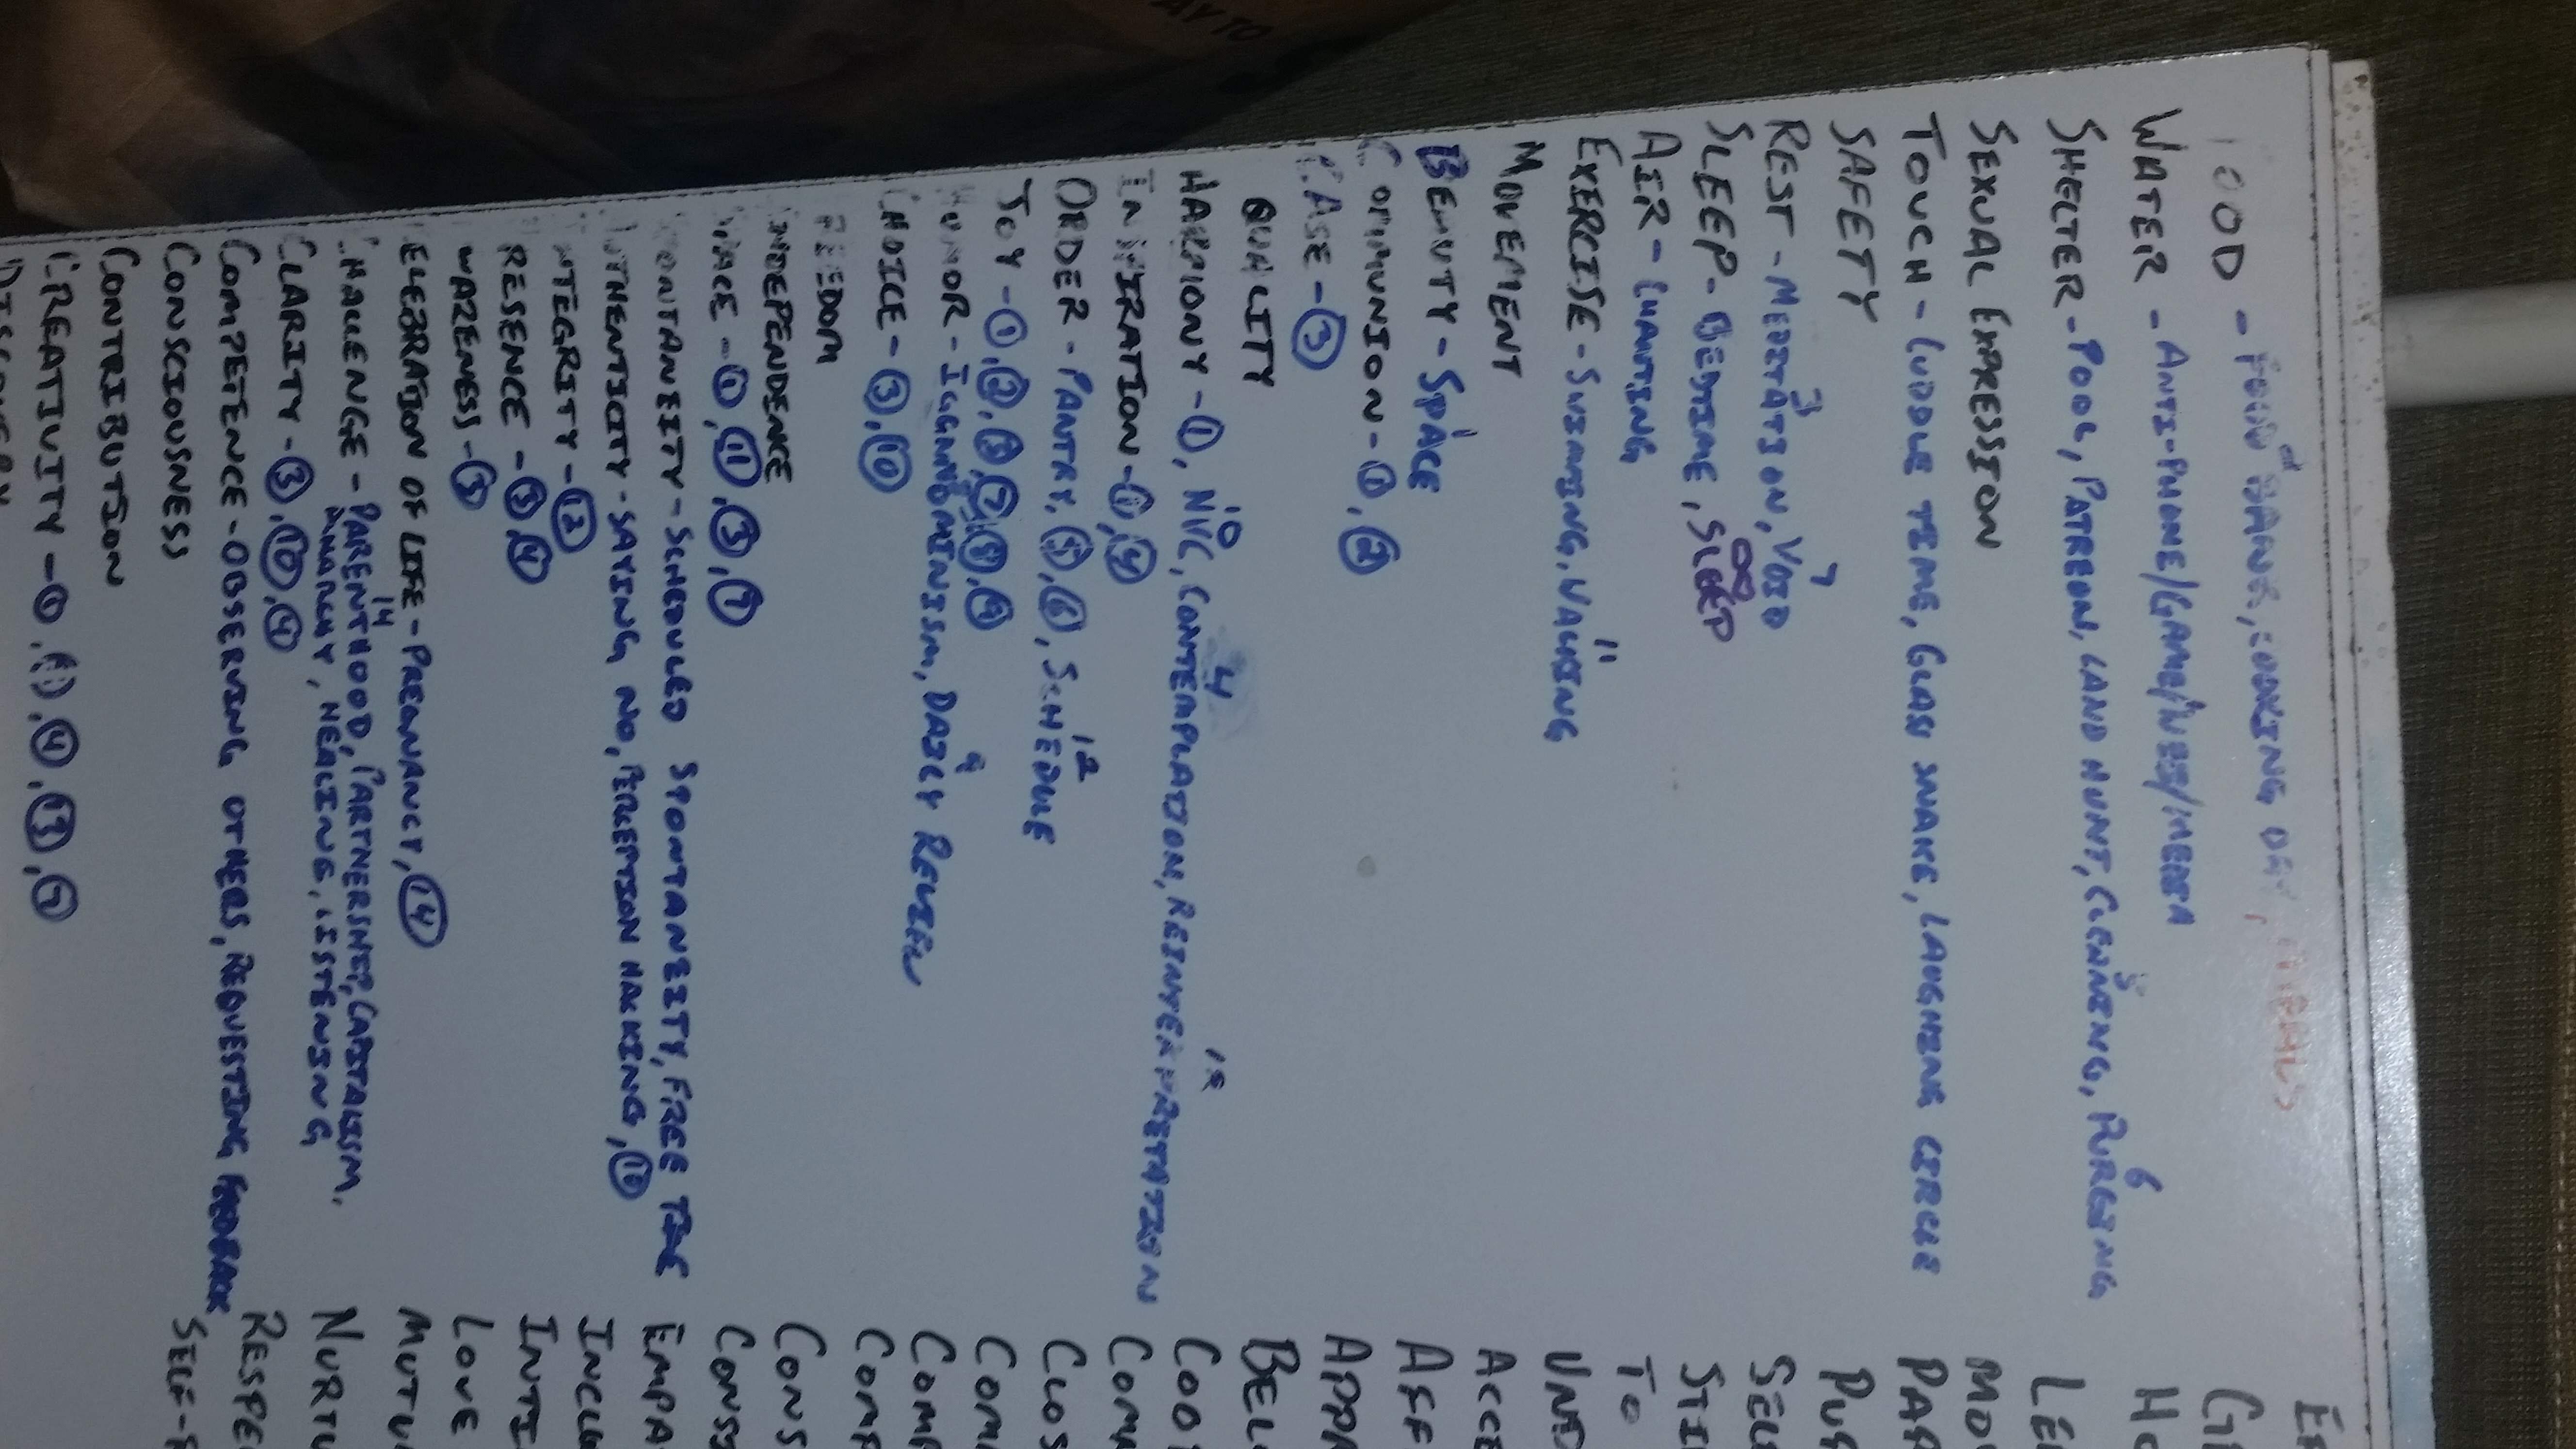 OOD - FOOD BANK, COOKING DAY, MEALS
WATER - ANTI-PHONE/GAME/WEB/MEDIA
5 6
SHELTER - POOL, PATREON, LAND HUNT, CLEANING, PURGING
SEXUAL EXPRESSION
TOUCH - CUDDLE TIME, GLASS SNAKE, LAUGHING CIRCLE
SAFETY
3 7
REST - MEDITATION, VOID
∞
SLEEP - BEDTIME, SLEEP
AIR - CHANTING
11
EXERCISE - SWIMMING, WALKING
MOVEMENT
1
BEAUTY - SPACE
COMMUNION - ①, ②
EASE - ③
QUALITY
10 4
HARMONY - ①, NVC, CONTEMPLATION, REINTERPRETATION
INSPIRATION - ①, ④
12
ORDER - PANTRY, ⑤, ⑥, SCHEDULE
JOY - ①, ②, ③, ⑦, ⑧, ⑨
9
HUMOR - DAILY REVIEW
CHOICE - ③, ⑩
FREEDOM
INDEPENDENCE
SPACE - ①, ⑪, ③, ⑦
ONTANEITY - SCHEDULED SPONTANEITY, FREE TIME
UTHENTICITY - SAYING NO, PERCEPTION HACKING, ⑩
NTEGRITY - ⑫
RESENCE - ③, ④
WARENESS - ③
ELEBRATION OF LIFE - PREGNANCY, ⑭
14
CHALLENGE - PARENTHOOD, PARTNERSHIP, CAPITALISM,
ANARCHY, HEALING, LISTENING
CLARITY - ③, ⑩, ④
COMPETENCE - OBSERVING OTHERS, REQUESTING FEEDBACK
CONSCIOUSNESS
CONTRIBUTION
CREATIVITY - ④, ⑬
DISCOVERY
HO
LE
MO
PAR
PUR
SEL
STI
TO
UND
ACCE
AFF
APPR
BEL
COO
COMM
CLOS
COMM
COMP
COMP
CONS
CONSI
EMPA
INCLU
INTI
LOVE
MUTU
NURTU
RESPE
SELF-